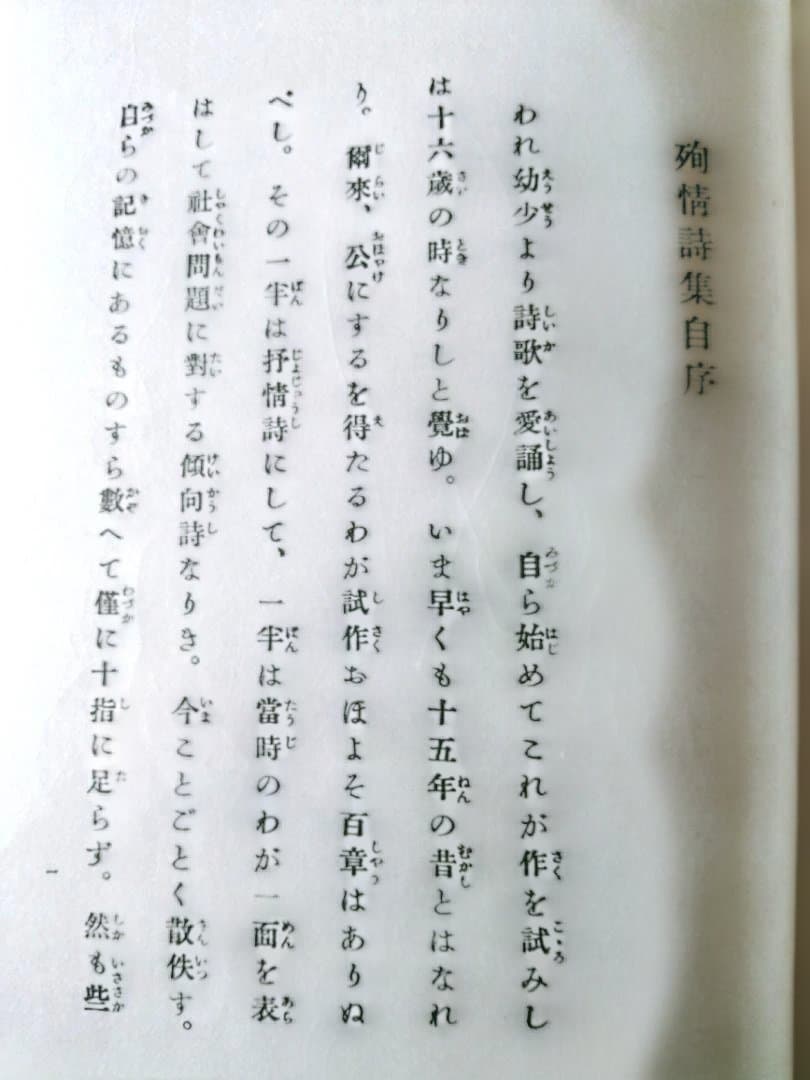 殉情詩集自序
われ幼少より詩歌を愛誦し、自ら始めてこれが作を試みし
は十六歳の時なりしと覺ゆ。いま早くも十五年の昔とはなれ
り。爾來、公にするを得たるわが試作おほよそ百章はありぬ
べし。その一半は抒情詩にして、一半は當時のわが一面を表
はして社會問題に對する傾向詩なりき。今ことごとく散佚す。
自らの記憶にあるものすら數へて僅に十指に足らず。然も些
一